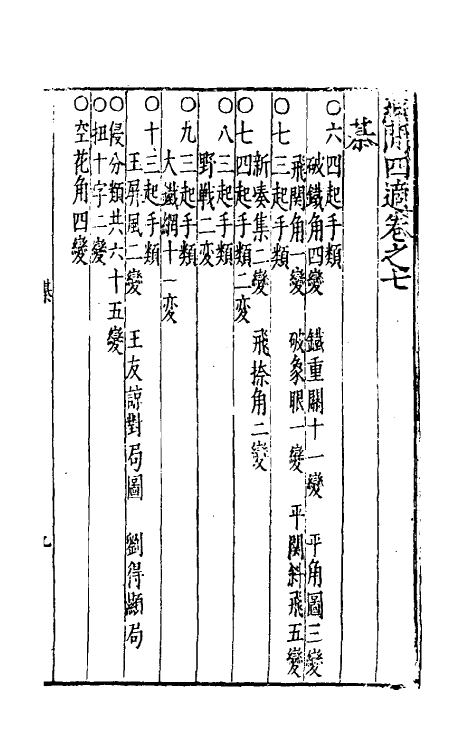 閒四適卷之七
棊
○六四起手類
破鐵角四變　鐵重關十一變　平角圖三變
飛關角一變　破象眼一變　平關斜飛五變
○七三起手類
新奏集二變　飛捺角二變
○七四起手類二变
○八三起手類
野戰二变
○九三起手類
大鐵網十一变
○十三起手類
王屏風二變　王友諒對局圖　劉得顯局
○侵分類共六十五變
○扭十字二變
○空花角四變
棊
九